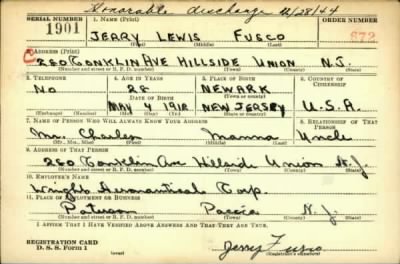 Honorable discharge 12/28/44
SERIAL NUMBER 1. NAME (Print) ORDER NUMBER
1901 JERRY LEWIS FUSCO 872
(First) (Middle) (Last)
2. ADDRESS (Print)
280 CONKLIN AVE HILLSIDE UNION N.J.
(Number and street or R. F. D. number) (Town) (County) (State)
3. TELEPHONE 4. AGE IN YEARS 5. PLACE OF BIRTH 6. COUNTRY OF CITIZENSHIP
No 28 NEWARK
DATE OF BIRTH (Town or county)
MAY 4 1912 NEW JERSEY U.S.A.
(Mo.) (Day) (Yr.) (State or country)
7. NAME OF PERSON WHO WILL ALWAYS KNOW YOUR ADDRESS 8. RELATIONSHIP OF THAT PERSON
Mr. Charles Manna Uncle
(Mr., Mrs., Miss) (First) (Middle) (Last)
9. ADDRESS OF THAT PERSON
280 Conklin Ave Hillsid Union N.J.
(Number and street or R. F. D. number) (Town) (County) (State)
10. EMPLOYER'S NAME
Wright Aeronautical Corp.
11. PLACE OF EMPLOYMENT OR BUSINESS
Paterson N.J.
(Number and street or R. F. D. number) (Town) (County) (State)
I AFFIRM THAT I HAVE VERIFIED ABOVE ANSWERS AND THAT THEY ARE TRUE.
REGISTRATION CARD
D. S. S. Form 1 (over) Jerry Fusco
(Registrant's signature)